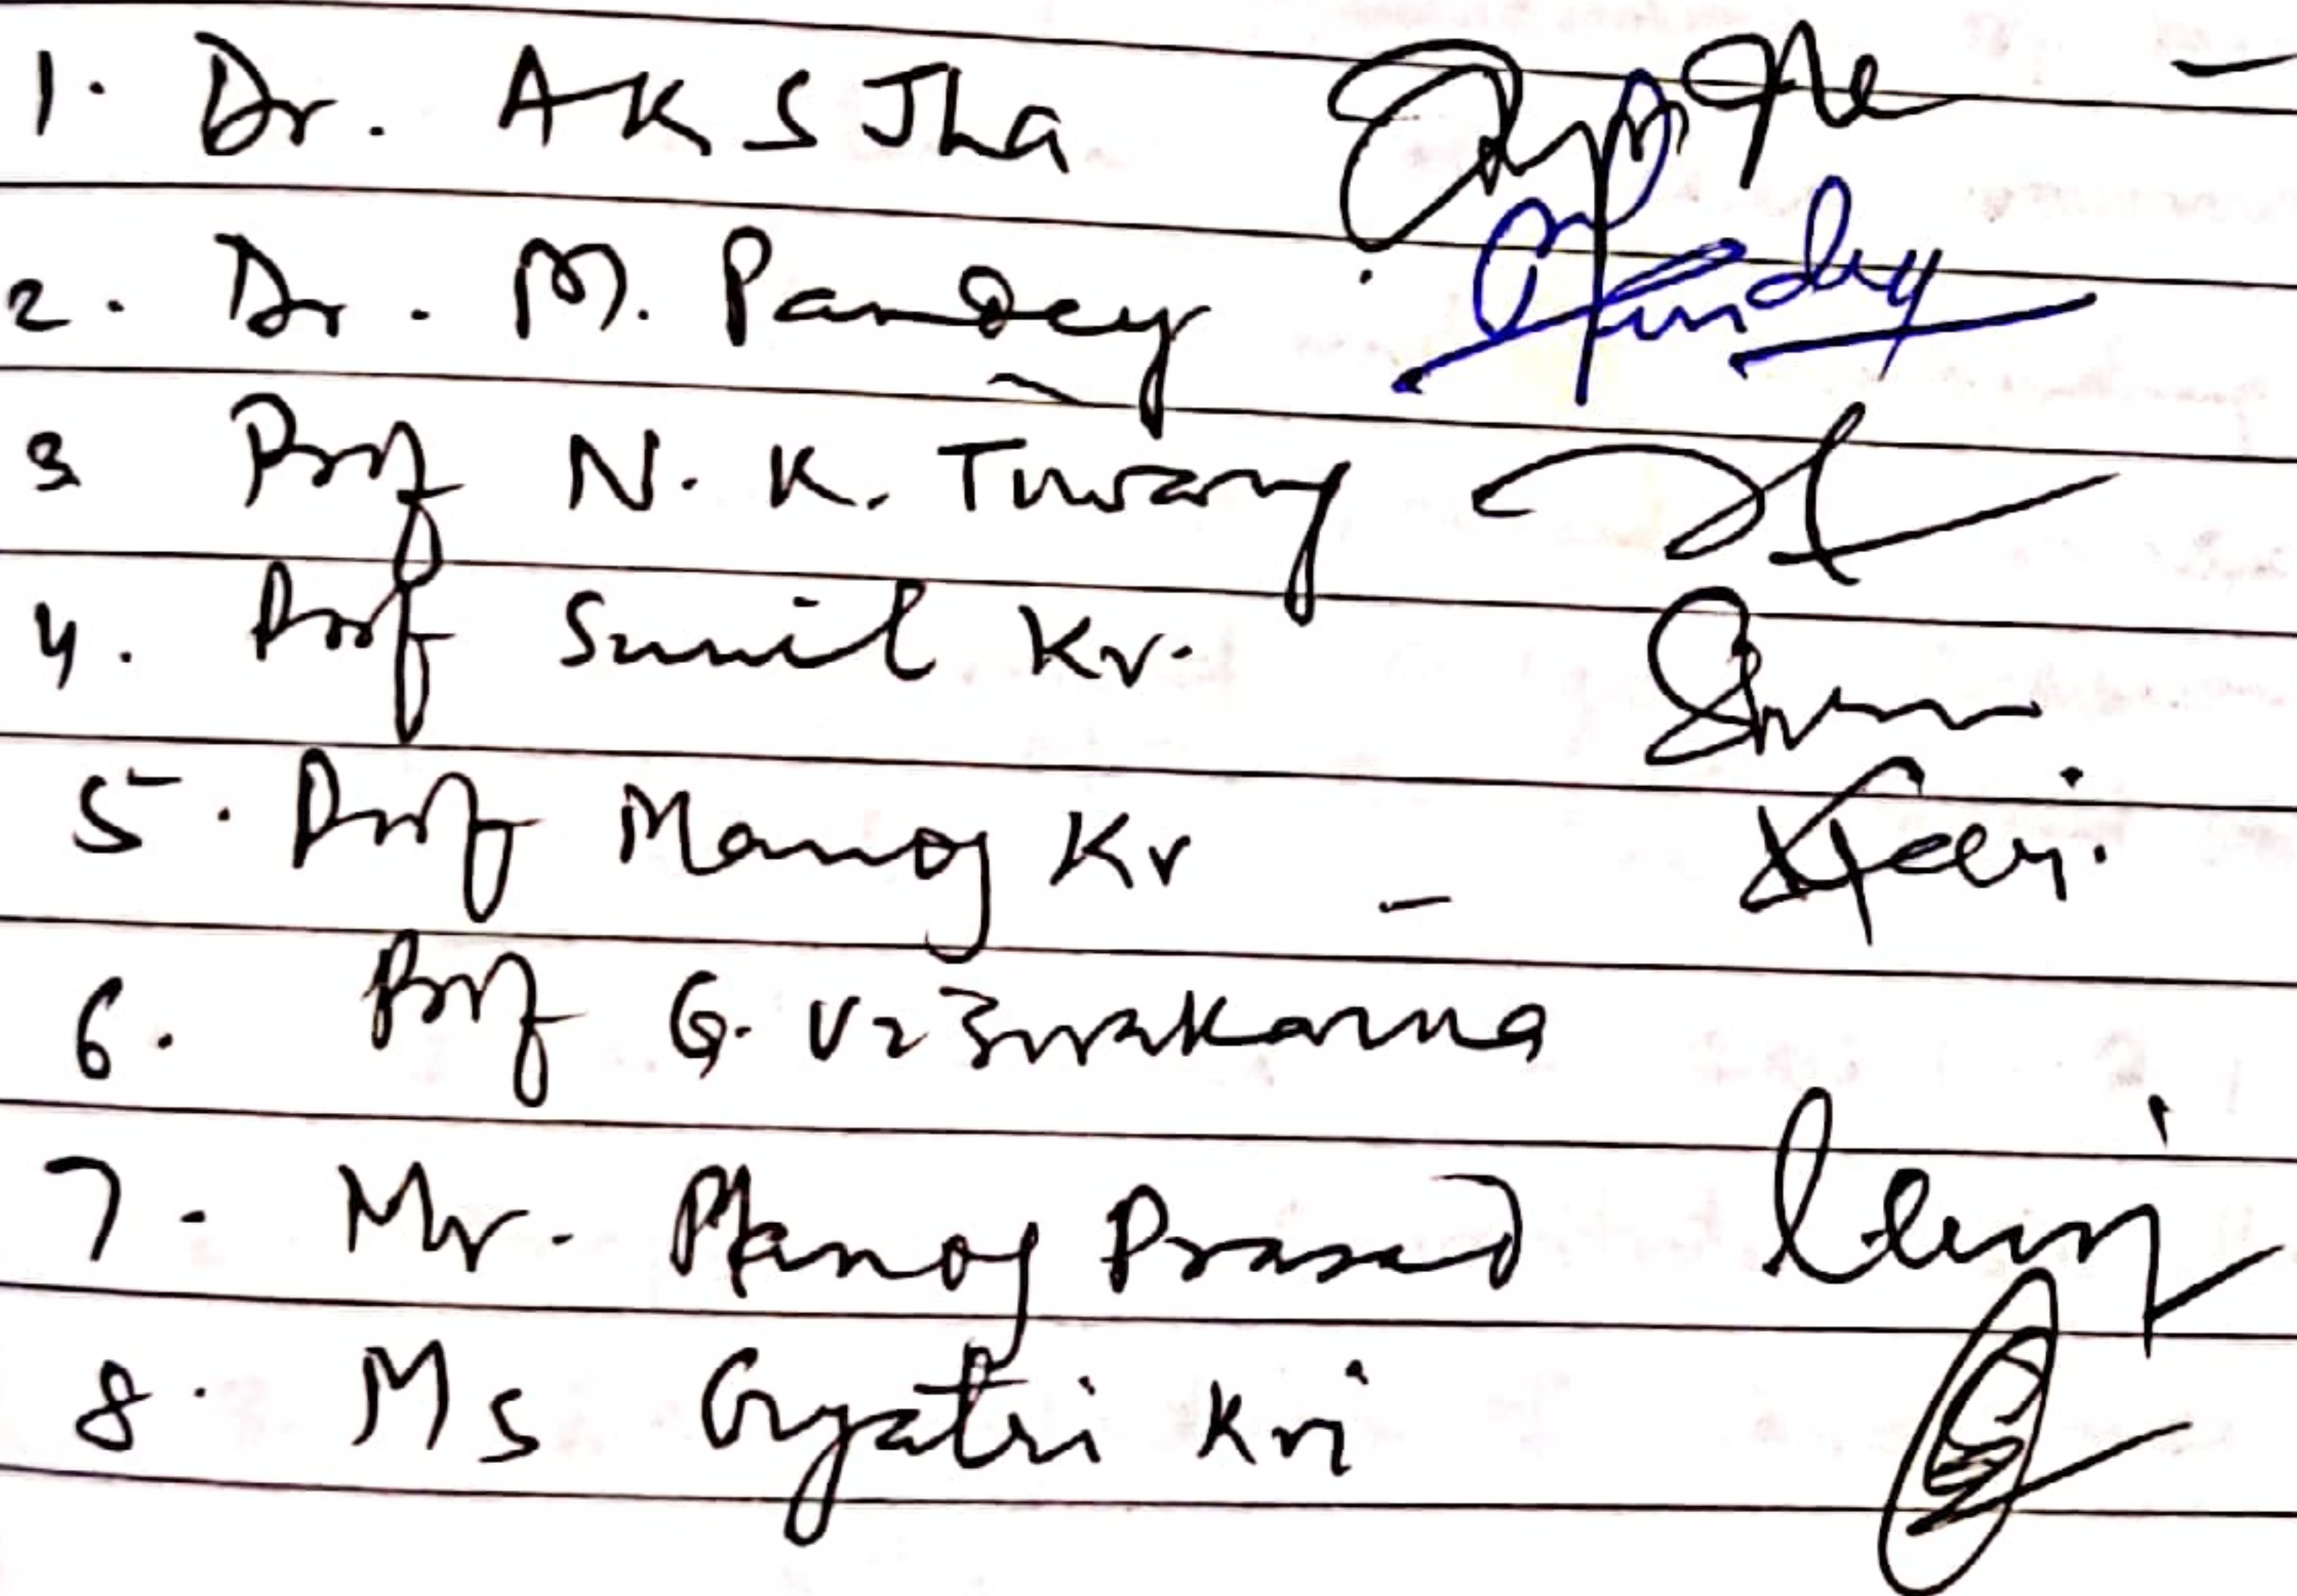 1. Dr. A K S Jha
2. Dr. M. Pandey Pandey
3 Prof N. K. Tiwary
4. Prof Sunil Kr.
5. Prof Manoj Kr -
6. Prof G. Viswakarma
7. Mr. Manoj Prasad
8. Ms Gyatri Kri